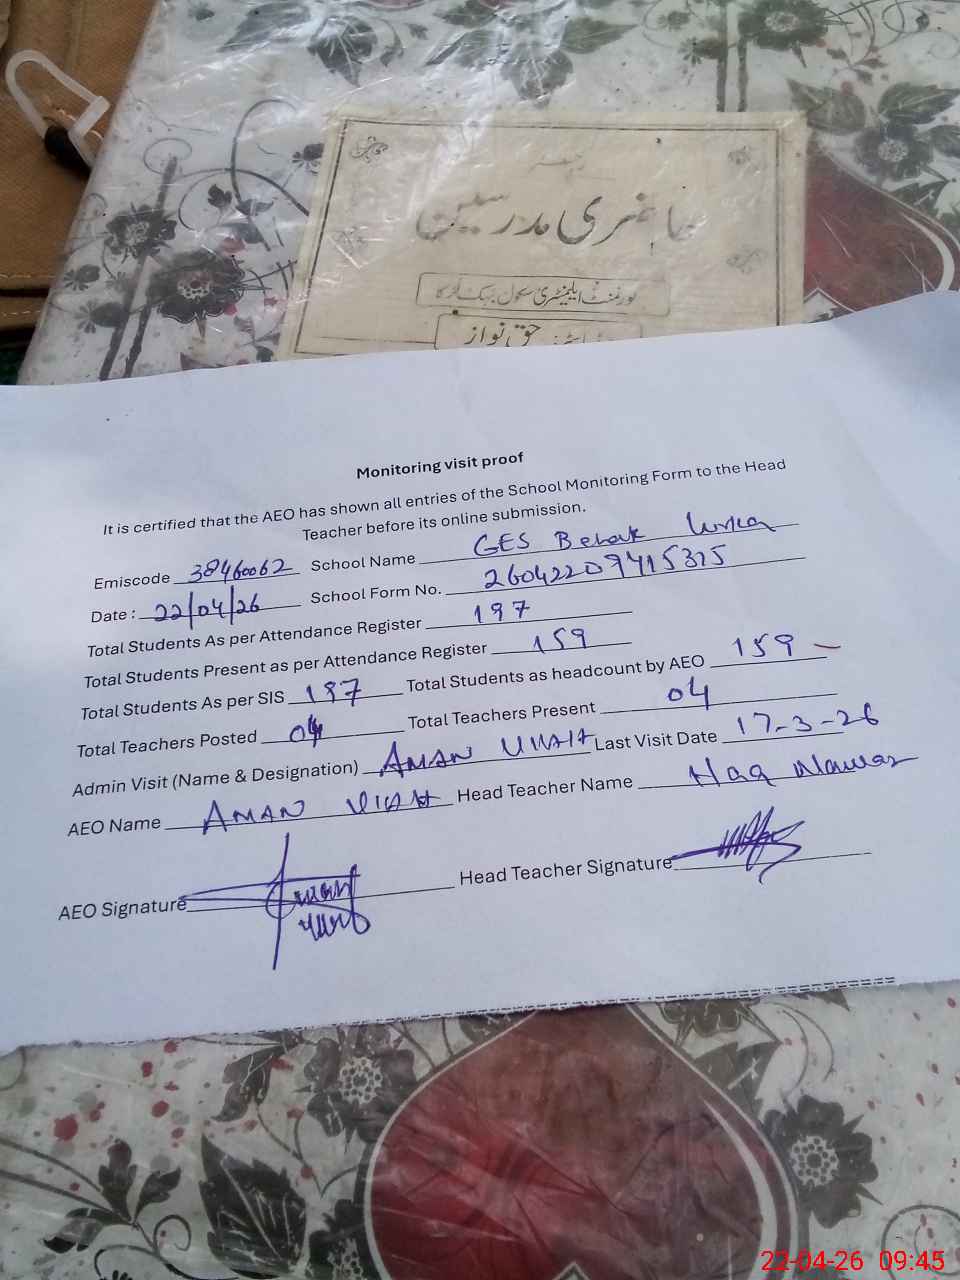 حاضری مدرسین
گورنمنٹ ایلیمنٹری سکول بہک لڑکا
حق نواز
Monitoring visit proof
It is certified that the AEO has shown all entries of the School Monitoring Form to the Head
Teacher before its online submission.
Emiscode 38460062 School Name GES Behak Lurka
Date: 22/04/26 School Form No. 26042209415315
Total Students As per Attendance Register 197
Total Students Present as per Attendance Register 159
Total Students As per SIS 197 Total Students as headcount by AEO 159
Total Teachers Posted 04 Total Teachers Present 04
Admin Visit (Name & Designation) AMAN Ullah Last Visit Date 17-3-26
AEO Name AMAN Ullah Head Teacher Name Haq Nawaz
AEO Signature Head Teacher Signature
22-04-26 09:45